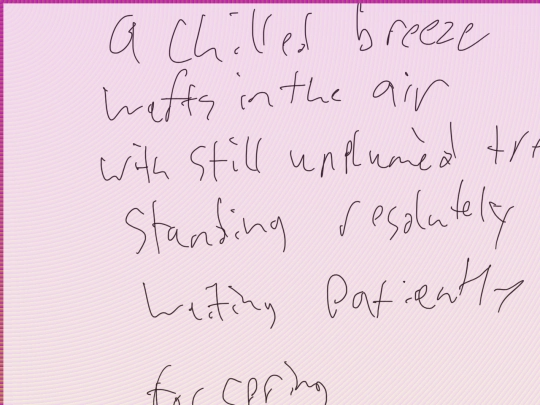 a chilled breeze
wafts in the air
with still unplumed
standing resolutely
waiting patiently
for spring